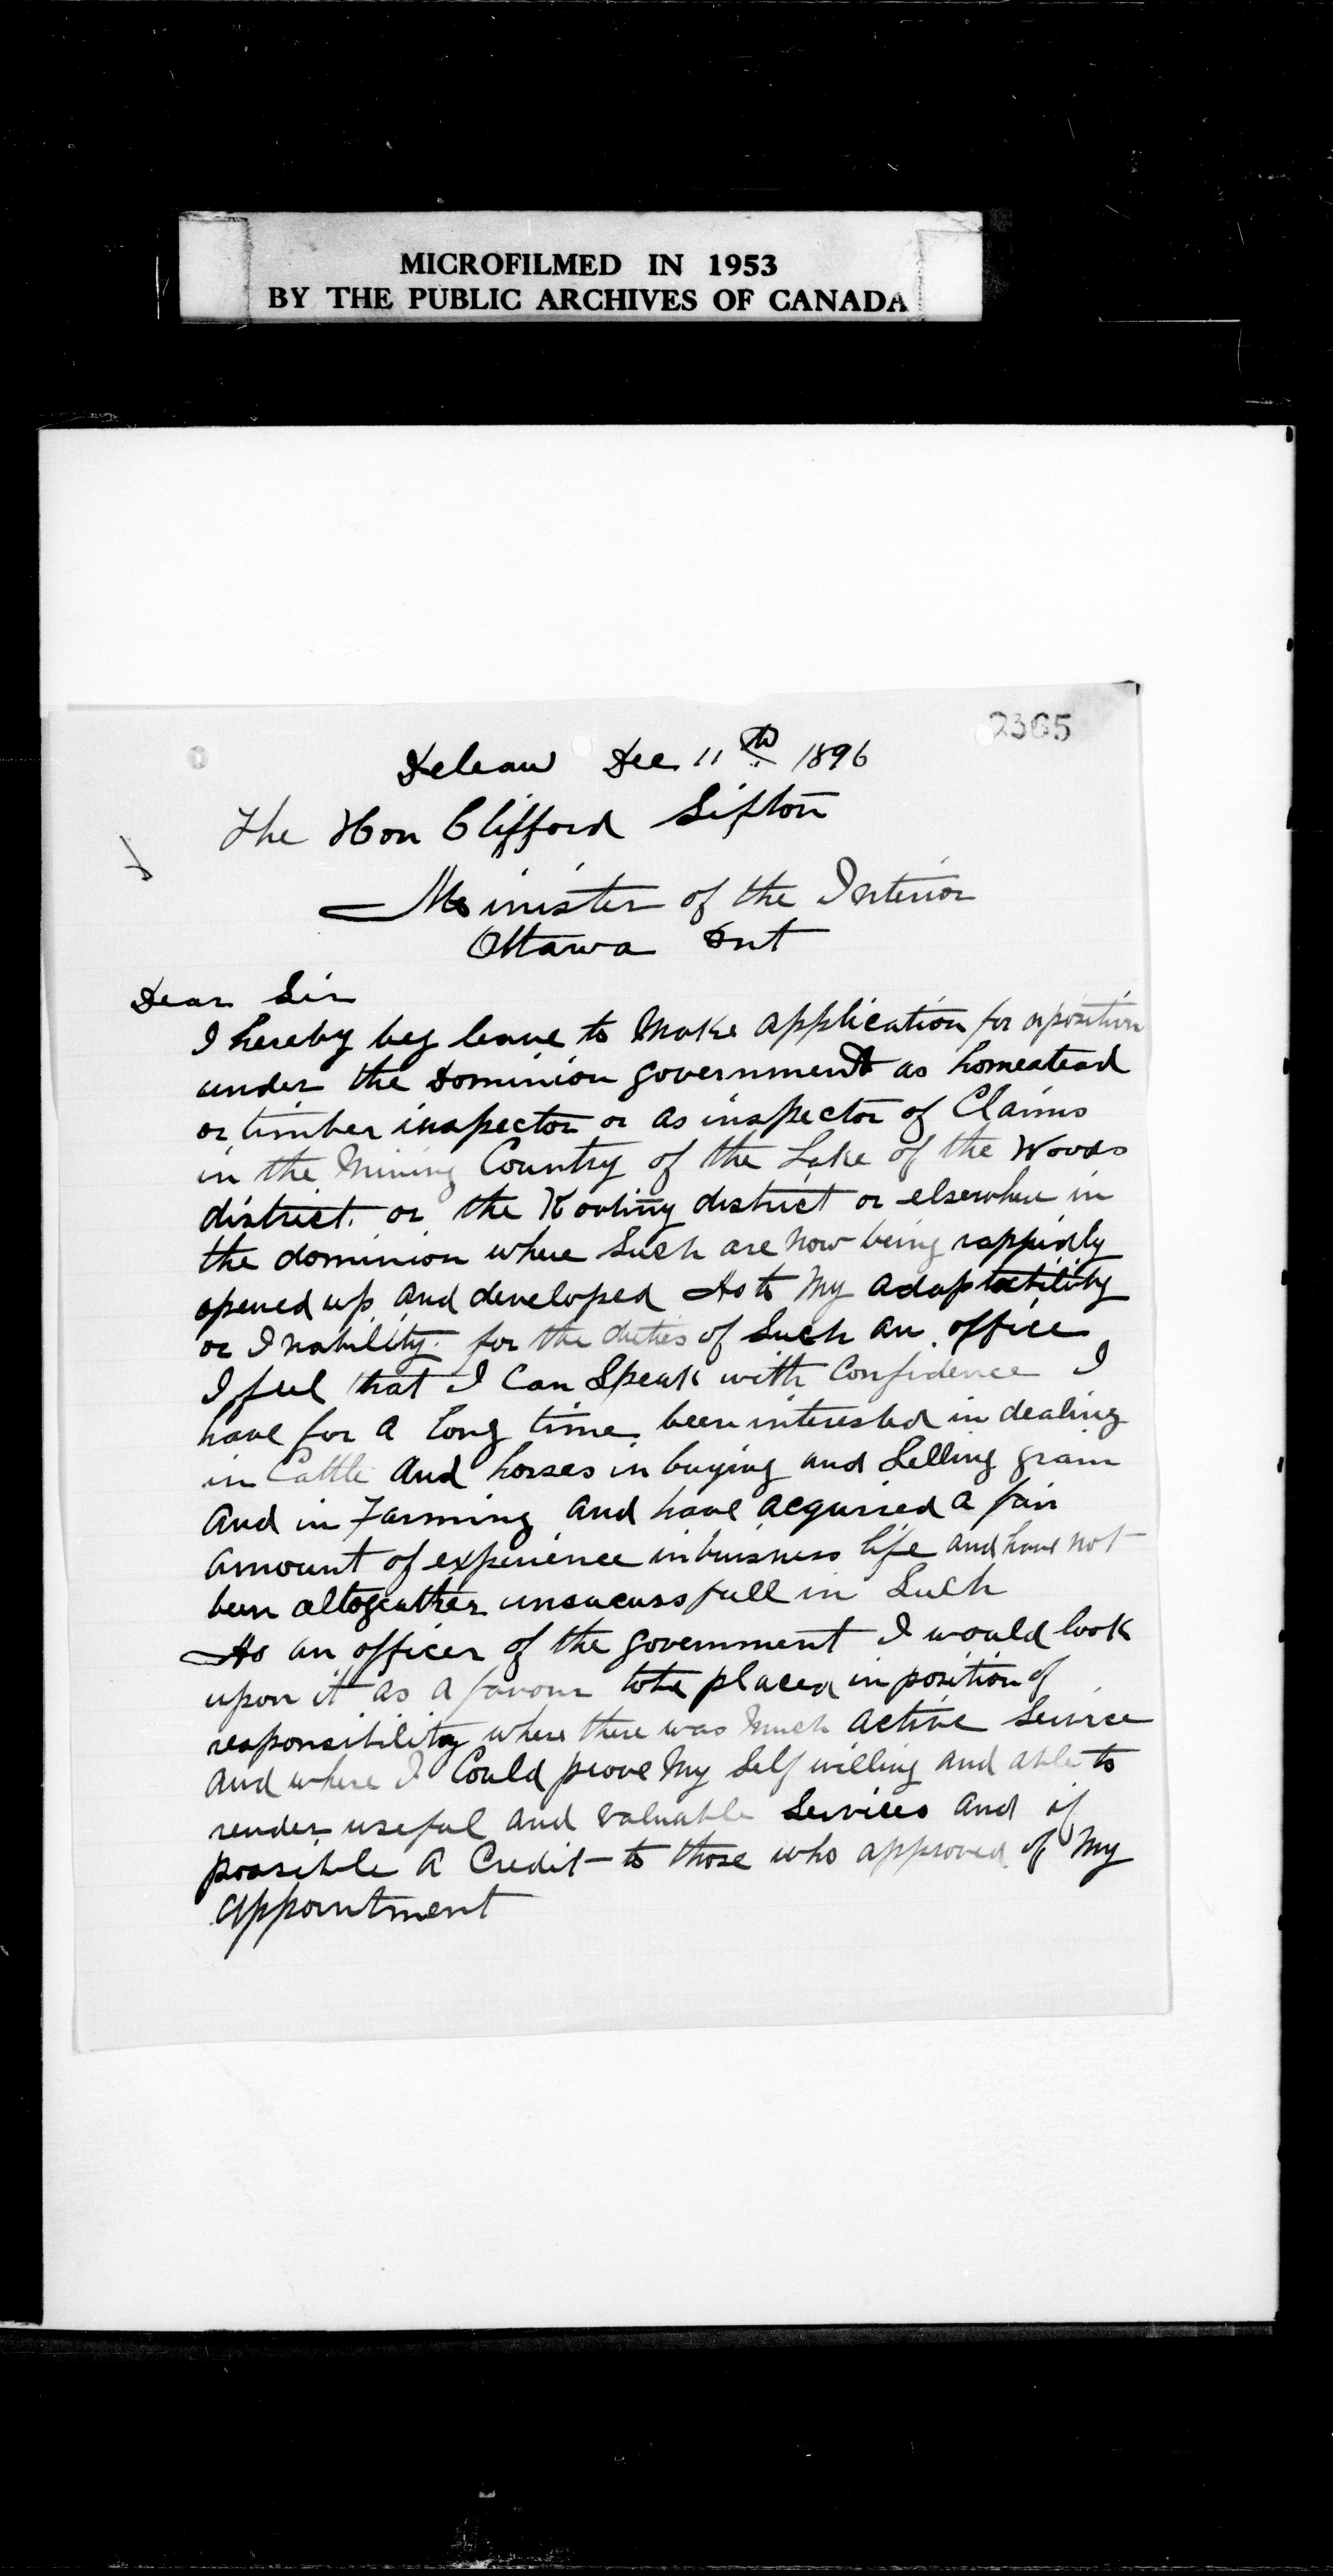 MICROFILMED IN 1953
BY THE PUBLIC ARCHIVES OF CANADA
2365
Deleau Dec 11th 1896
The Hon Clifford Sifton
Minister of the Interior
Ottawa Ont
Dear Sir
I hereby beg leave to make application for a position
under the Dominion government as homestead
or timber inspector or as inspector of Claims
in the Mining Country of the Lake of the Woods
district. or the Kootiny district or elsewhere in
the dominion where Such are now being rappidly
opened up and developed As to My adaptability
or Inability for the duties of Such an office
I feel that I Can Speak with Confidence I
have for a long time been interested in dealing
in Cattle and horses in buying and Selling grain
and in Farming and have acquried a fair
amount of experience in buisness life and have not
been altogeather unsucussfull in Such
As an officer of the government I would look
upon it as a favour to be placed in position of
responsibility where there was Much active Service
and where I Could prove My Self willing and able to
render useful and valuable Services and if
possible a Credit to those who approved of My
appointment